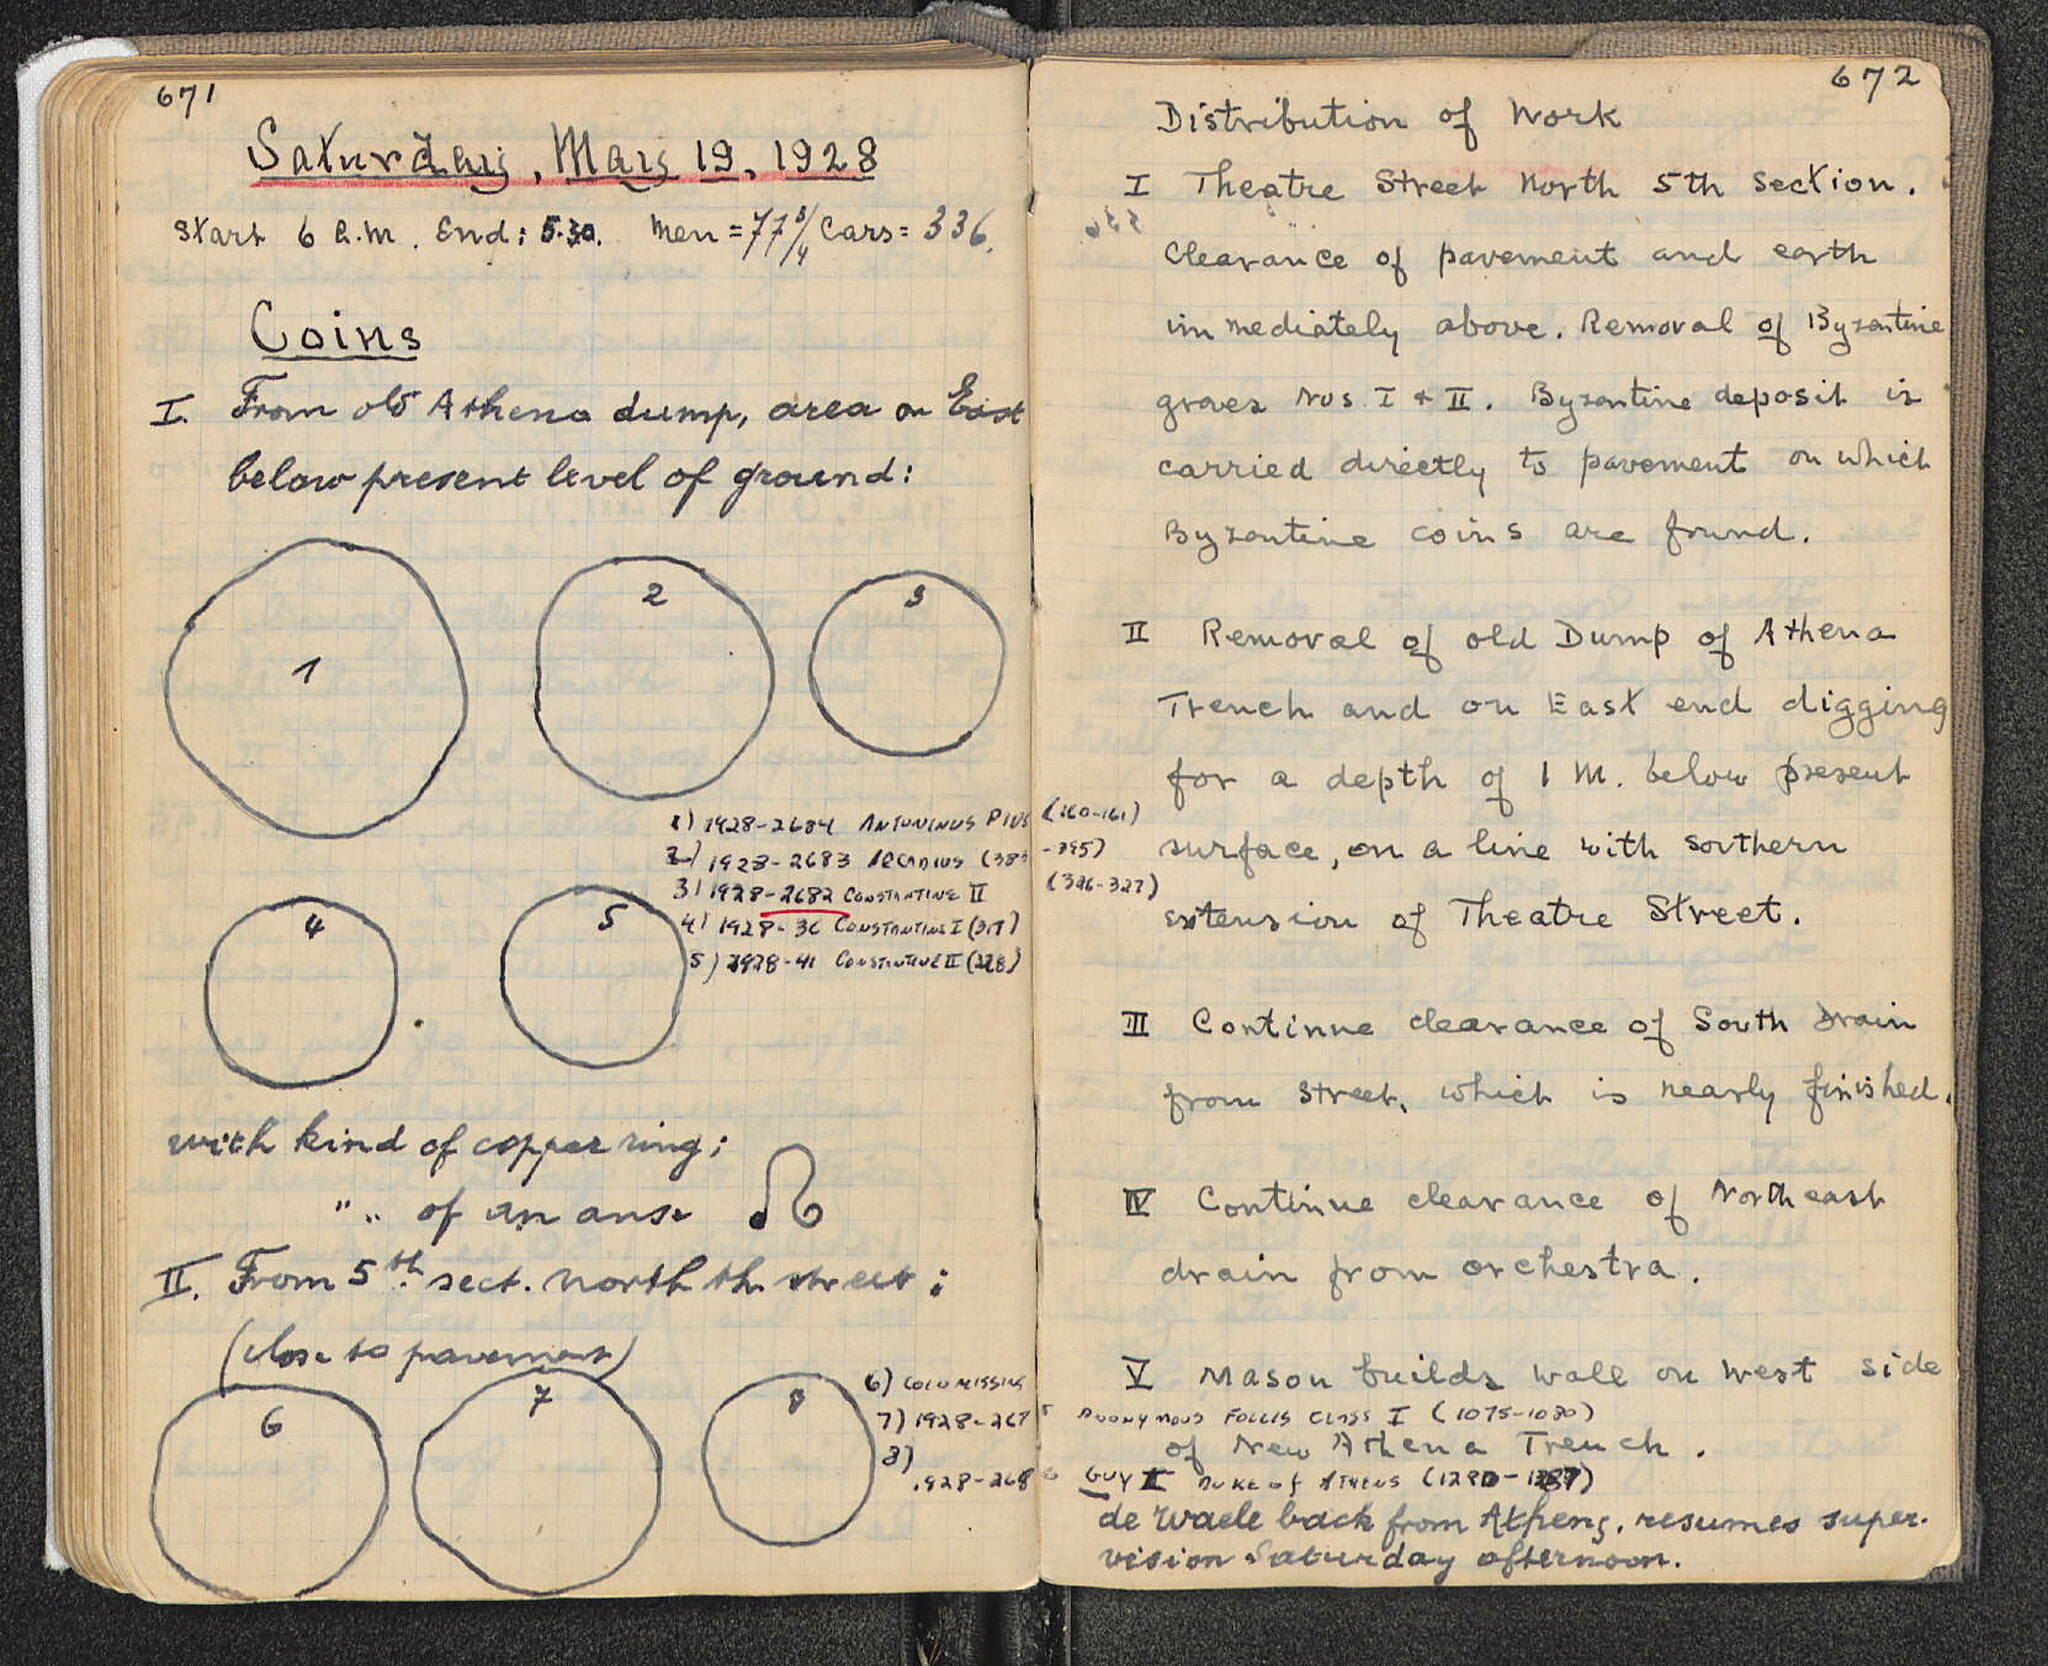 671
Saturday, May 19, 1928
Start 6 a.m. End: 5.30. Men = 77 3/4 Cars = 336.
Coins
I. From old Athena dump, area on East
below present level of ground:
1
2
3
1) 1928-2684 Antoninus Pius (160-161)
2) 1928-2683 Arcadius (383-395)
3) 1928-2682 Constantine II (326-327)
4) 1928-36 Constantine I (317)
5) 1928-41 Constantine II (328)
4
5
with kind of copper ring:
" " of an anse
II. From 5th sect. north th. street:
(close to pavement)
6
7
8
6) Coin missing
7) 1928-267 Anonymous Follis Class I (1075-1080)
8) 1928-268 Guy II Duke of Athens (1280-1287)
672
Distribution of Work
I Theatre Street North 5th section.
Clearance of pavement and earth
immediately above. Removal of Byzantine
graves Nos. I & II. Byzantine deposit is
carried directly to pavement on which
Byzantine coins are found.
II Removal of old Dump of Athena
Trench and on East end digging
for a depth of 1 M. below present
surface, on a line with southern
extension of Theatre Street.
III Continue clearance of South Drain
from street, which is nearly finished.
IV Continue clearance of Northeast
drain from orchestra.
V Mason builds wall on west side
of New Athena Trench.
de Waele back from Athens, resumes super-
vision Saturday afternoon.